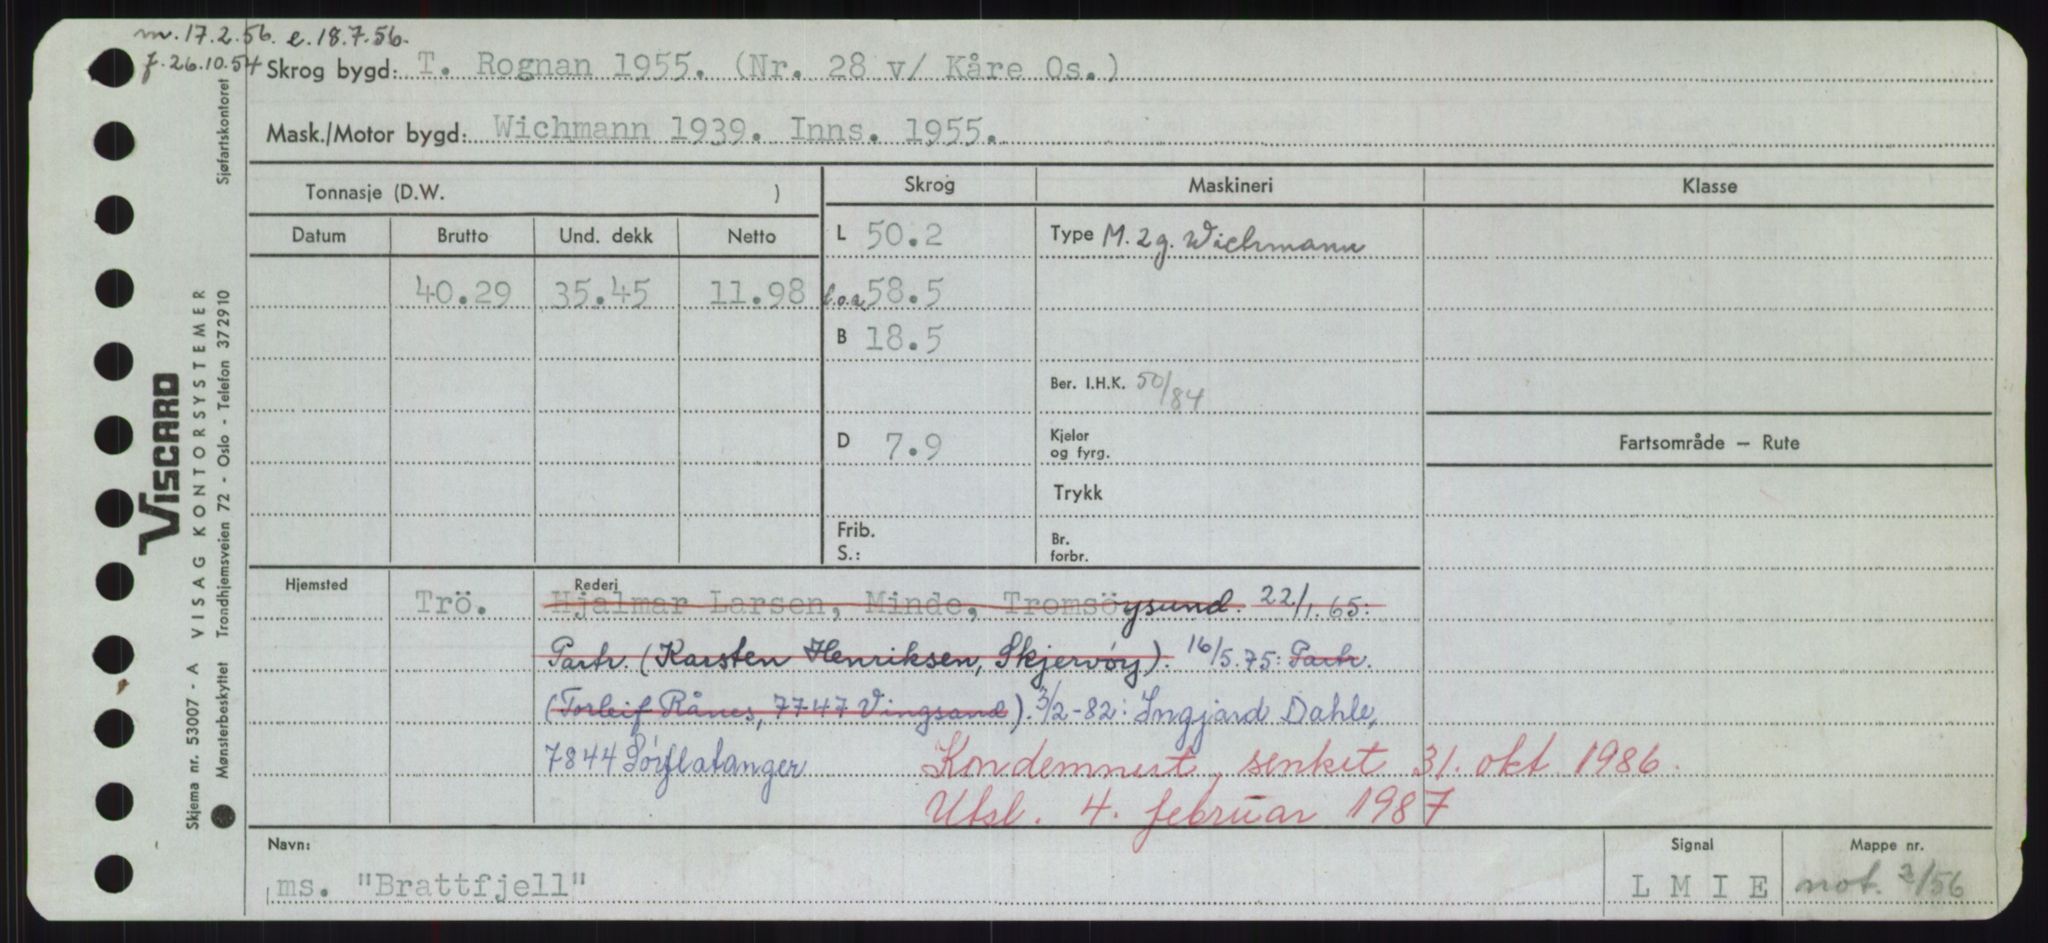 m. 17.2.56. e. 18.7.56.
f. 26.10.54 Skrog bygd: T. Rognan 1955. (Nr. 28 v/ Kåre Os.)
Mask./Motor bygd: Wichmann 1939. Inns. 1955.
Tonnasje (D.W. ) Skrog Maskineri Klasse
Datum Brutto Und. dekk Netto L 50.2 Type M. 2g. Wichmann
40.29 35.45 11.98 l.o.a. 58.5
B 18.5
Ber. I.H.K. 50/84
D 7.9 Kjeler og fyrg. Fartsområde – Rute
Trykk
Frib. S.: Br. forbr.
Hjemsted Rederi
Trö. Hjalmar Larsen, Minde, Tromsöysund. 22/1.65:
Partr. (Karsten Henriksen, Skjervøy). 16/5.75: Partr.
(Torleif Rånes, 7747 Vingsand). 3/2-82: Ingjard Dahle,
7844 Sørflatanger Kondemnert, senket 31. okt 1986.
Utsl. 4. februar 1987
Navn: Signal Mappe nr.
ms. "Brattfjell" L M I E not. 2/56
VISCARD
Skjema nr. 53007 - A VISAG KONTORSYSTEMER
Mønsterbeskyttet Trondhjemsveien 72 - Oslo - Telefon 372910
Sjøfartskontoret